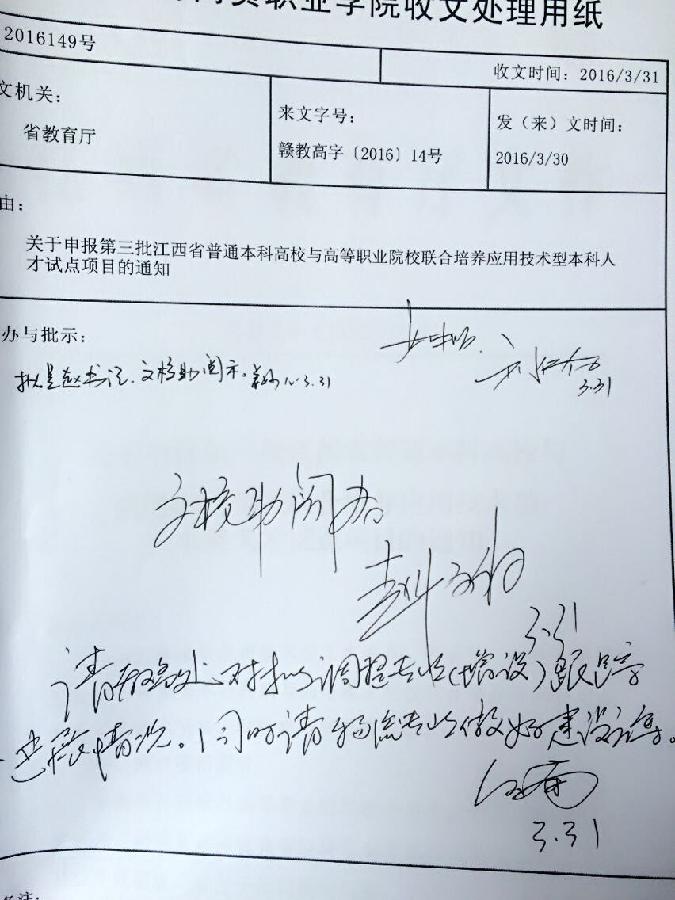 贸职业学院收文处理用纸
2016149号
收文时间：2016/3/31
文机关：
省教育厅
来文字号：
赣教高字〔2016〕14号
发（来）文时间：
2016/3/30
由：
关于申报第三批江西省普通本科高校与高等职业院校联合培养应用技术型本科人
才试点项目的通知
办与批示：
拟呈赵书记、文校助阅示。 3.31
3.31
文校助阅办
3.31
请 处对拟调整专业（增设）跟踪
进展情况。同时请物流专业做好建设
3.31
备注：